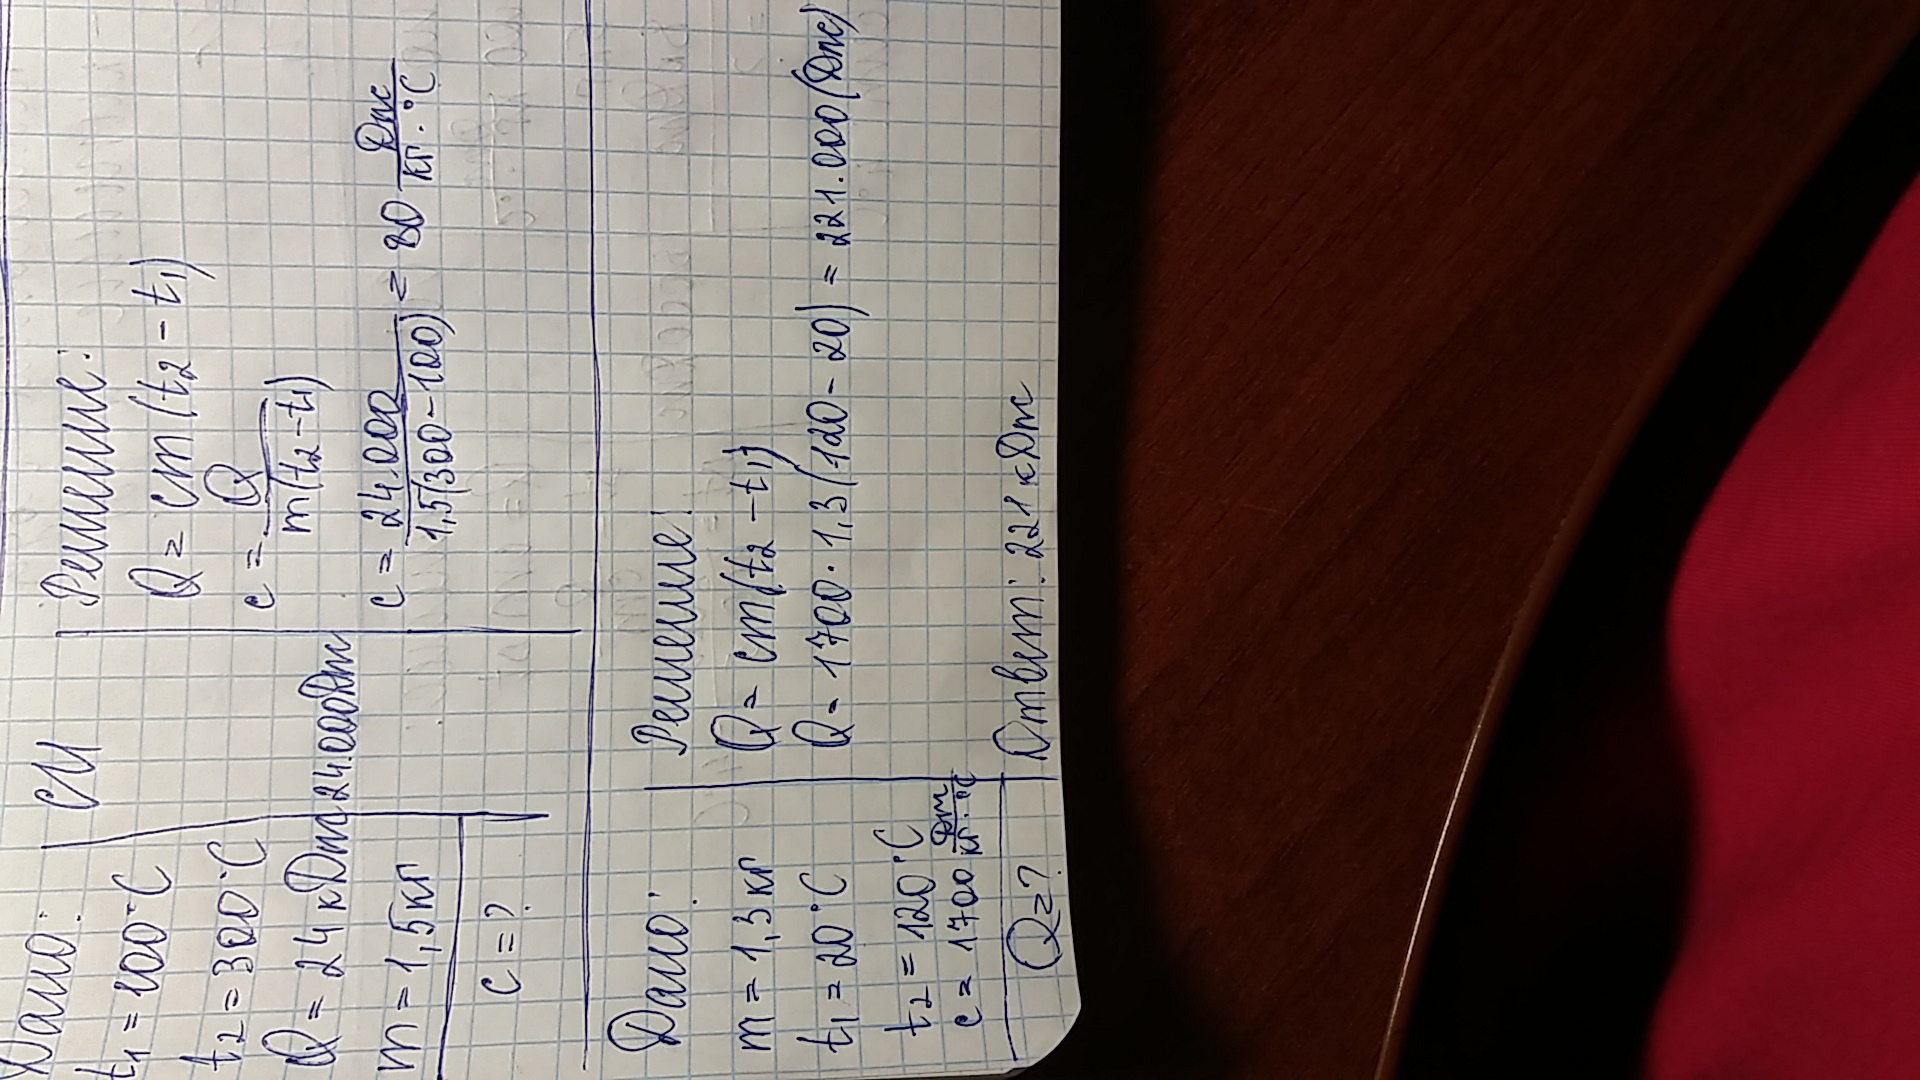 Дано:
СИ
Решение:
t₁ = 100°C
t₂ = 300°C
Q = 24 кДж 24.000Дж
m = 1,5кг
c = ?
Q = cm(t₂ - t₁)
c = Q / m(t₂ - t₁)
c = 24.000 / 1,5(300 - 100) = 80 Дж / кг · °C
Дано:
m = 1,3 кг
t₁ = 20°C
t₂ = 120°C
c = 1700 Дж / кг · °C
Q = ?
Решение:
Q = cm(t₂ - t₁)
Q = 1700 · 1,3(120 - 20) = 221.000 (Дж)
Ответ: 221 кДж